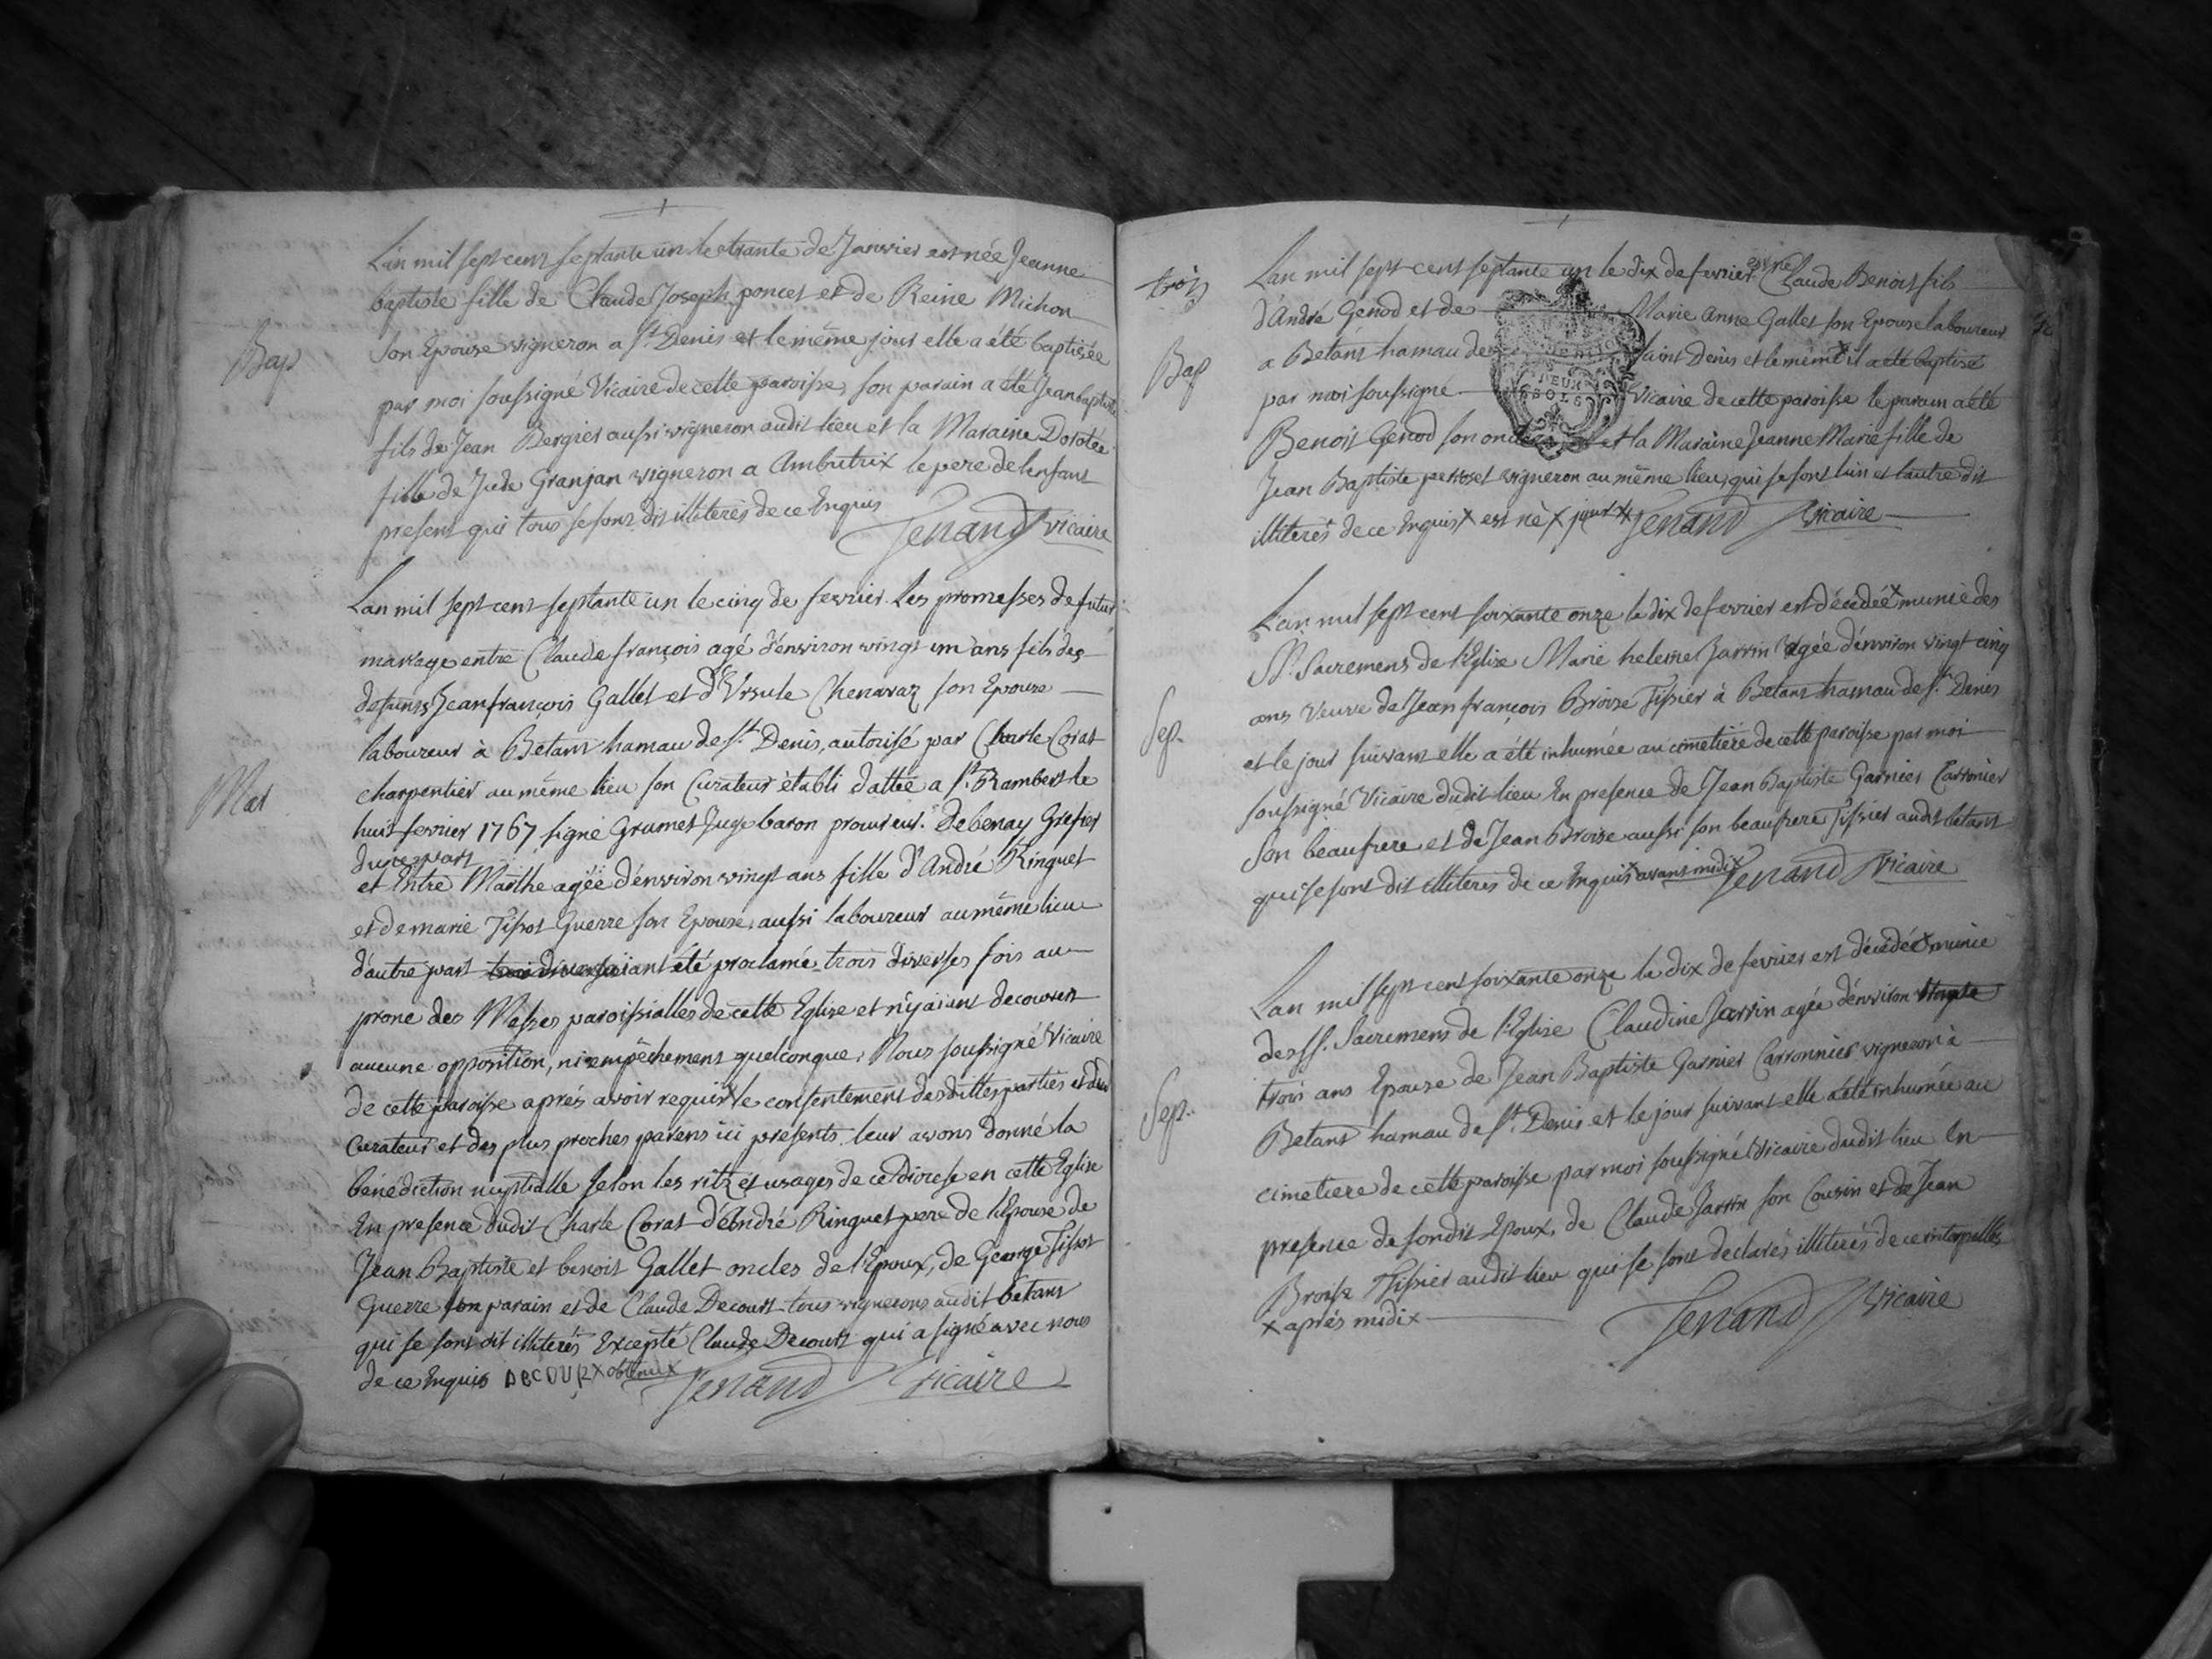 Lan mil sept cent septante un le trante de Janvier est née Jeanne
baptiste fille de Claude Joseph poncet et de Reine Michon
Bap
son Epouse vigneron a St. Denis et le même jour elle a été baptisée
par moi soussigné Vicaire de cette paroisse, son parain a été Jean baptiste
fils de Jean Bergier aussi vigneron audit lieu et la Maraine Dorotée
fille de Jude Granjan vigneron a Ambutrix le pere de lenfant
present qui tous se sont dit illiterés de ce Enquis
Tenand vicaire
Lan mil sept cent septante un le cinq de fevrier Les promesses de futur
mariage entre Claude françois agé d'environ vingt un ans fils des
defunts Jean françois Gallet et d'Ursule Chenavaz son Epouse
laboureur à Betant hamau de St. Denis, autorisé par Charle Corat
Mar
charpentier au même lieu son Curateur établi dattée a St Rambert le
huit fevrier 1767 signé Grumet Juge baron procureur. Debenay Grefier
dune part
et Entre Marthe agée d'environ vingt ans fille d'André Ringuet
et de marie Tissot Guerre son Epouse, aussi laboureur au même lieu
d'autre part aiant été proclamé trois diverses fois au
prone des Messes paroissialles de cette Eglise et n'y aiant decouvert
aucune opposition, ni empêchement quelconque, Nous soussigné Vicaire
de cette paroisse aprés avoir requis x le consentement desdittes parties et du
Curateur et des plus proches parens ici presents leur avons donné la
bénédiction nuptialle selon les ritz et usages de ce Diocese en cette Eglise
En presence dudit Charle Corat d'André Ringuet pere de l'Epouse de
Jean Baptiste et benoit Gallet oncles de l'Epoux, de George Tissot
Guerre son parain et de Claude Decourt tous vignerons audit betant
qui se sont dit illiterés Excepté Claude Decourt qui a signé avec nous
de ce Enquis DECOUR x obtenu x Tenand vicaire
trois
Lan mil sept cent septante un le dix de fevrier est né Claude Benoit fils
d'André Genod et de Marie Anne Gallet son Epouse laboureur
a Betant hamau de saint Denis et le même x il a été baptisé
DEUX
SOLS
Bap
par moi soussigné Vicaire de cette paroisse le parain a été
Benoit Genod son oncle et la Maraine Jeanne Marie fille de
Jean Baptiste vigneron au même lieu, qui se sont lun et lautre dit
illiterés de ce Enquis x est né x jour x Tenand Vicaire
Lan mil sept cent soixante onze le dix de fevrier est décedée x munie des
St. Sacremens de l'Eglise Marie heleine Jarrin agée d'environ vingt cinq
ans Veuve de Jean françois Broise Tissier à Betant hamau de St. Denis
Sep.
et le jour suivant elle a été inhumée au cimetiere de cette paroisse par moi
soussigné Vicaire dudit lieu En presence de Jean Baptiste Garnier Carronier
son beaufrere et de Jean Broise aussi son beaufrere Tissier audit betant
qui se sont dit illiterés de ce Enquis x avant midi x Tenand Vicaire
Lan mil sept cent soixante onze le dix de fevrier est décédée x munie
des SS. Sacremens de l'Eglise Claudine Jarrin agée d'environ
trois ans Epouse de Jean Baptiste Garnier Carronnier vigneron à
Sep.
Betant hamau de St. Denis et le jour suivant elle a été inhumée au
cimetiere de cette paroisse par moi soussigné Vicaire dudit lieu En
presence de sondit Epoux, de Claude Jarrin son Cousin et de Jean
Broise Tissier audit lieu qui se sont declarés illiterés de ce interpellés
x aprés midi x Tenand Vicaire